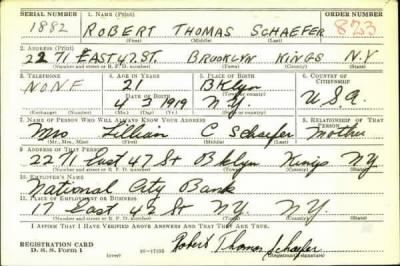 SERIAL NUMBER 1. NAME (Print) ORDER NUMBER
1882 ROBERT THOMAS SCHAEFER 823
(First) (Middle) (Last)
2. ADDRESS (Print)
2271 EAST 47 ST. BROOKLYN KINGS N.Y
(Number and street or R. F. D. number) (Town) (County) (State)
3. TELEPHONE 4. AGE IN YEARS 5. PLACE OF BIRTH 6. COUNTRY OF CITIZENSHIP
NONE 21 BKlyn
DATE OF BIRTH (Town or county)
4 3 1919 N.Y. U.S.A.
(Exchange) (Number) (Mo.) (Day) (Yr.) (State or country)
7. NAME OF PERSON WHO WILL ALWAYS KNOW YOUR ADDRESS 8. RELATIONSHIP OF THAT PERSON
Mrs Lillian C Schaefer Mother
(Mr., Mrs., Miss) (First) (Middle) (Last)
9. ADDRESS OF THAT PERSON
2271 East 47 St Bklyn Kings NY
(Number and street or R. F. D. number) (Town) (County) (State)
10. EMPLOYER'S NAME
National City Bank
11. PLACE OF EMPLOYMENT OR BUSINESS
17 East 42 St N.Y. N.Y.
(Number and street or R. F. D. number) (Town) (County) (State)
I AFFIRM THAT I HAVE VERIFIED ABOVE ANSWERS AND THAT THEY ARE TRUE.
REGISTRATION CARD
D. S. S. Form 1 (over) 16-17105 Robert Thomas Schaefer